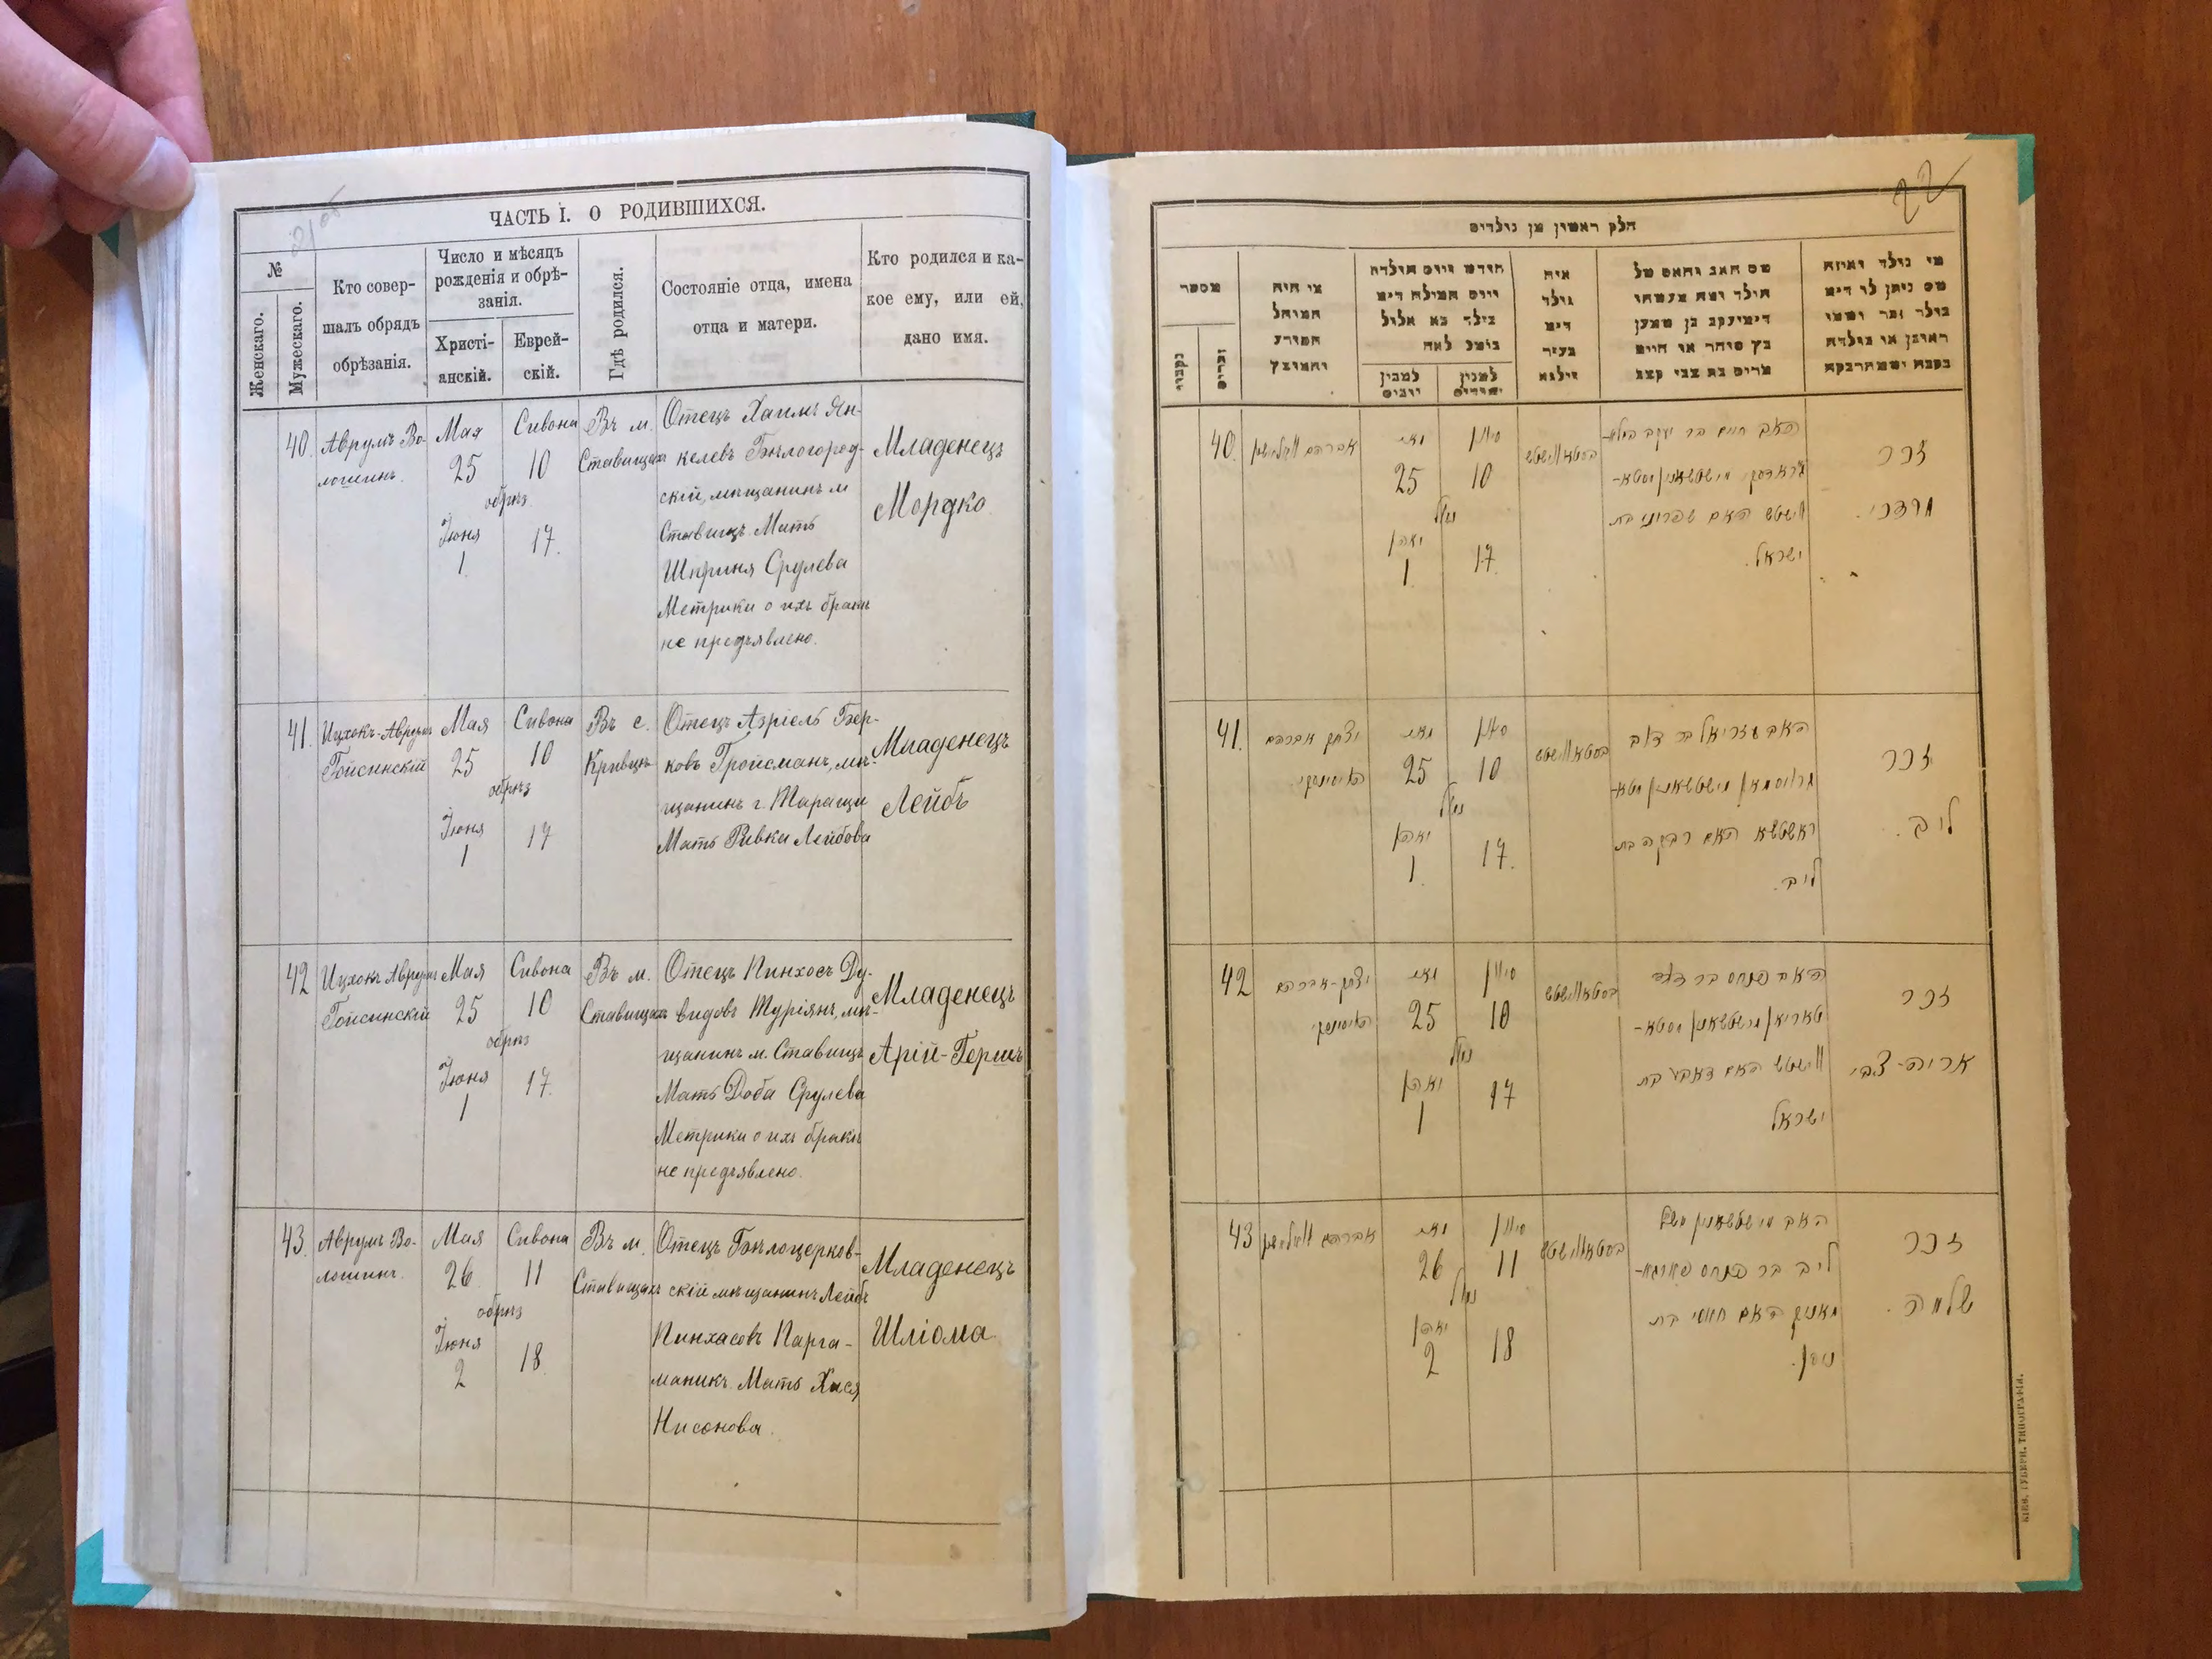 ЧАСТЬ I. О РОДИВШИХСЯ.
№
Женскаго.
Мужескаго.
Кто совер-
шалъ обрядъ
обрѣзанія.
Число и мѣсяцъ
рожденія и обрѣ-
занія.
Христі-
анскій.
Еврей-
скій.
Гдѣ родился.
Состояніе отца, имена
отца и матери.
Кто родился и ка-
кое ему, или ей,
дано имя.
40.
Аврумъ Во-
лошинъ.
Мая
25
обрѣз.
Іюня
1.
Сивона
10
17.
Въ м.
Ставищахъ
Отецъ Хаимъ Ян-
келевъ Бѣлогород-
скій, мѣщанинъ м
Ставищъ. Мать
Шприня Срулева
Метрики о ихъ бракѣ
не предъявлено.
Младенецъ
Мордко
41.
Ицхокъ-Аврумъ
Гойсинскій
Мая
25
обрѣз
Іюня
1
Сивона
10
17
Въ с.
Кривцѣ
Отецъ Азріель Бер-
ковъ Гройсманъ, мѣ-
щанинъ г. Таращи
Мать Ривка Лейбова
Младенецъ
Лейбъ
42
Ицхокъ Аврумъ
Гойсинскій
Мая
25
обрѣз
Іюня
1
Сивона
10
17.
Въ м.
Ставищахъ
Отецъ Пинхосъ Ду-
видовъ Туріянъ, мѣ-
щанинъ м. Ставищъ
Мать Доба Срулева
Метрики о ихъ бракѣ
не предъявлено.
Младенецъ
Арій-Гершъ
43.
Аврумъ Во-
лошинъ.
Мая
26
обрѣз
Іюня
2
Сивона
11
18.
Въ м.
Ставищахъ
Отецъ Бѣлоцерков-
скій мѣщанинъ Лейбъ
Пинхасовъ Парга-
маникъ. Мать Хася
Нисонова.
Младенецъ
Шліома
22
חלק ראשון מן נולדים
מספר
נקבות
זכרים
מי היה
המוהל
הפורע
והמוצץ
חודש ויום הולדת
ויום המילה
למנין
למנין
איה
נולד
שם האב והאם של
מי נולד ואיזה
שם ניתן לו
40.
אברהם וואלאשין
מאי
25
נמול
יאהן
1.
סיון
10
17.
בסטאווישטש
האב חיים בר יעקב
האם שפריני בת
ישראל.
זכר
מרדכי.
41.
יצחק אברהם
מאי
25
נמול
יאהן
1.
סיון
10
17.
בסטאווישטש
האב עזריאל בר דוב
גרויסמאן
האם רבקה בת
ליב.
זכר
ליב.
42
יצחק-אברהם
מאי
25
נמול
יאהן
1
סיון
10
17
בסטאווישטש
האב פנחס בר דוד
האם דאבע בת
ישראל
זכר
אריה-צבי
43
אברהם וואלאשין
מאי
26
נמול
יאהן
2
סיון
11
18
בסטאווישטש
ליב בר פנחס
האם חאסי בת
ניסן.
זכר
שלמה.
КІЕВ. ГУБЕРН. ТИПОГРАФІЯ.